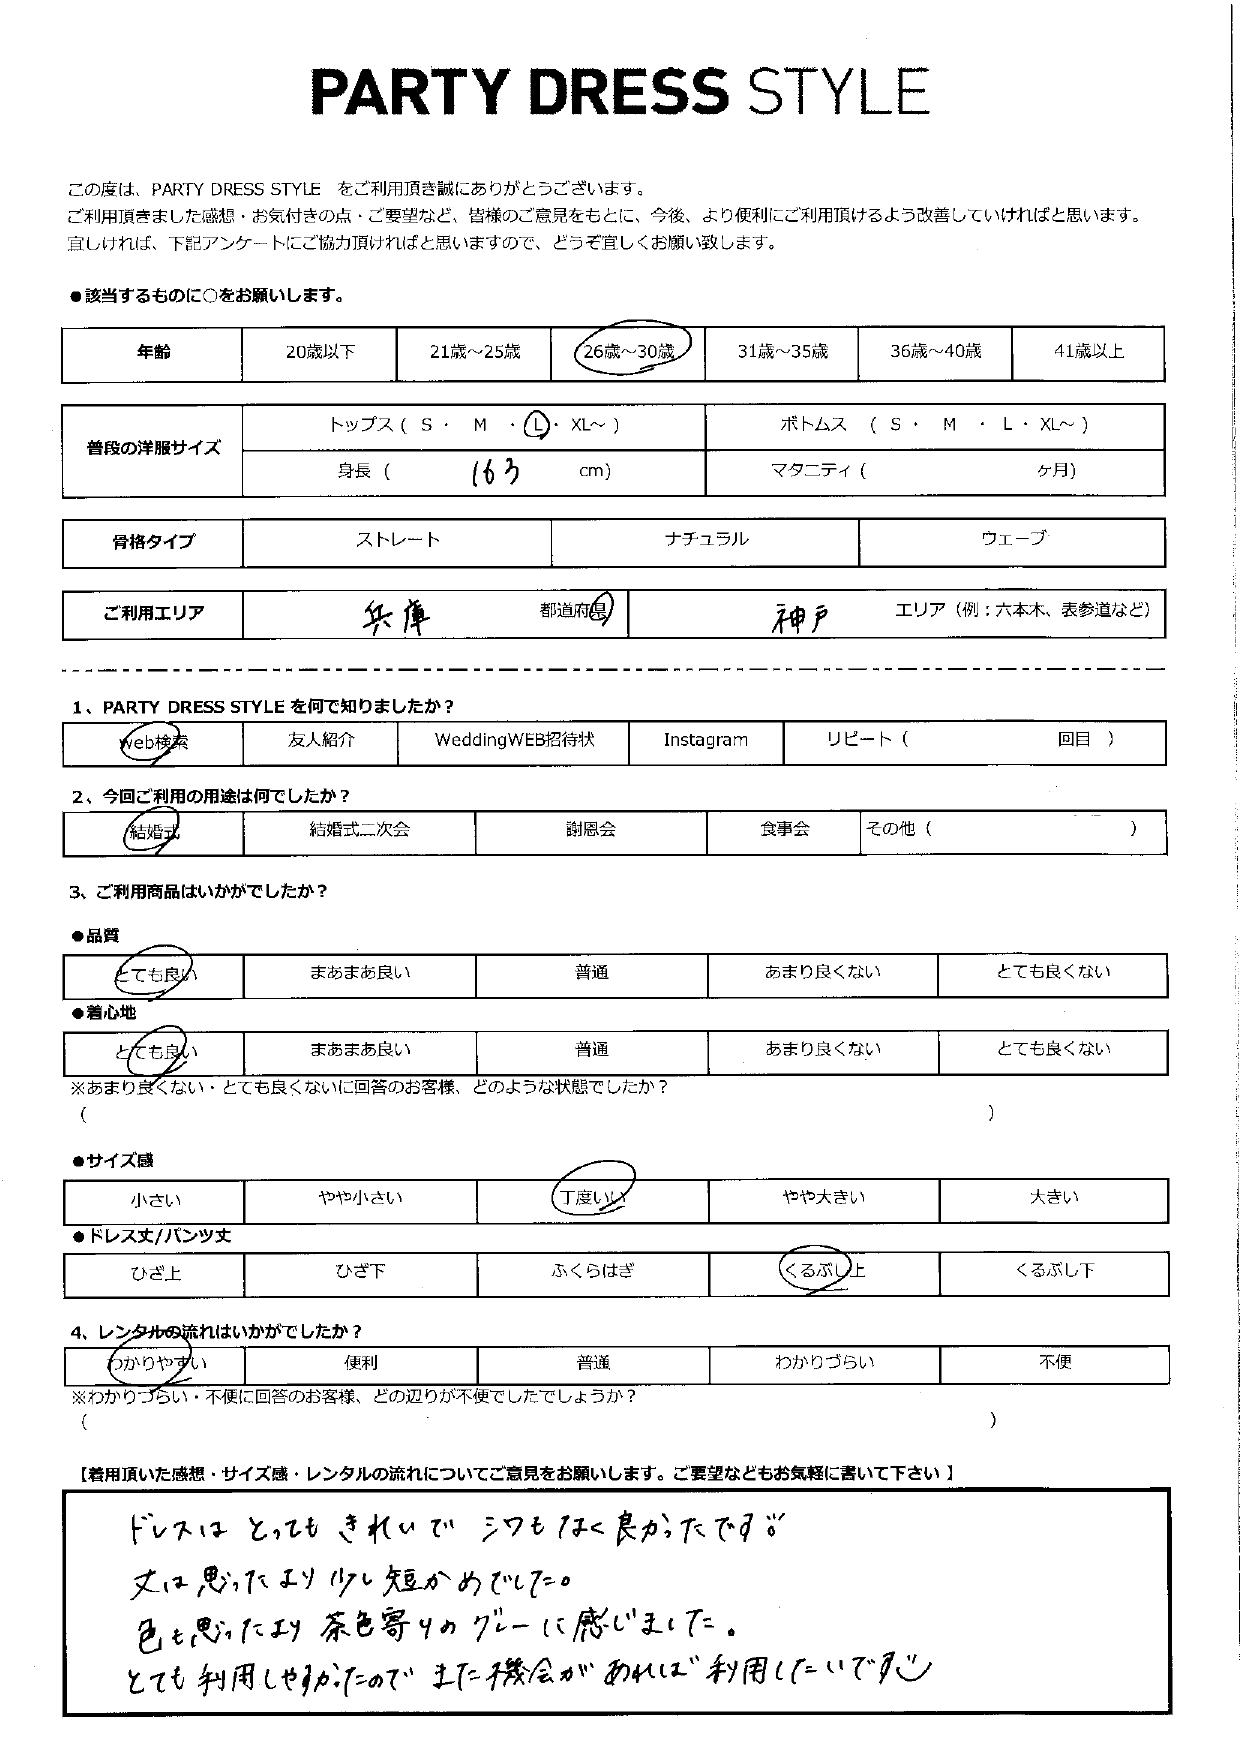 PARTY DRESS STYLE
この度は、PARTY DRESS STYLE　をご利用頂き誠にありがとうございます。
ご利用頂きました感想・お気付きの点・ご要望など、皆様のご意見をもとに、今後、より便利にご利用頂けるよう改善していければと思います。
宜しければ、下記アンケートにご協力頂ければと思いますので、どうぞ宜しくお願い致します。
●該当するものに○をお願いします。
年齢 20歳以下 21歳～25歳 26歳～30歳 31歳～35歳 36歳～40歳 41歳以上
普段の洋服サイズ トップス ( S ・ M ・ L ・ XL～ ) ボトムス ( S ・ M ・ L ・ XL～ )
身長 ( 163 cm) マタニティ ( ヶ月)
骨格タイプ ストレート ナチュラル ウェーブ
ご利用エリア 兵庫 都道府県 神戸 エリア（例：六本木、表参道など）
1、PARTY DRESS STYLE を何で知りましたか？
web検索 友人紹介 WeddingWEB招待状 Instagram リピート ( 回目 )
2、今回ご利用の用途は何でしたか？
結婚式 結婚式二次会 謝恩会 食事会 その他 ( )
3、ご利用商品はいかがでしたか？
●品質
とても良い まあまあ良い 普通 あまり良くない とても良くない
●着心地
とても良い まあまあ良い 普通 あまり良くない とても良くない
※あまり良くない・とても良くないに回答のお客様、どのような状態でしたか？
( )
●サイズ感
小さい やや小さい 丁度いい やや大きい 大きい
●ドレス丈/パンツ丈
ひざ上 ひざ下 ふくらはぎ くるぶし上 くるぶし下
4、レンタルの流れはいかがでしたか？
わかりやすい 便利 普通 わかりづらい 不便
※わかりづらい・不便に回答のお客様、どの辺りが不便でしたでしょうか？
( )
【着用頂いた感想・サイズ感・レンタルの流れについてご意見をお願いします。ご要望などもお気軽に書いて下さい 】
ドレスは とっても きれいで シワもなく良かったです
丈は思ったより少し短かめでした。
色も思ったより 茶色寄りのグレーに感じました。
とても利用しやすかったので また機会があれば利用したいです